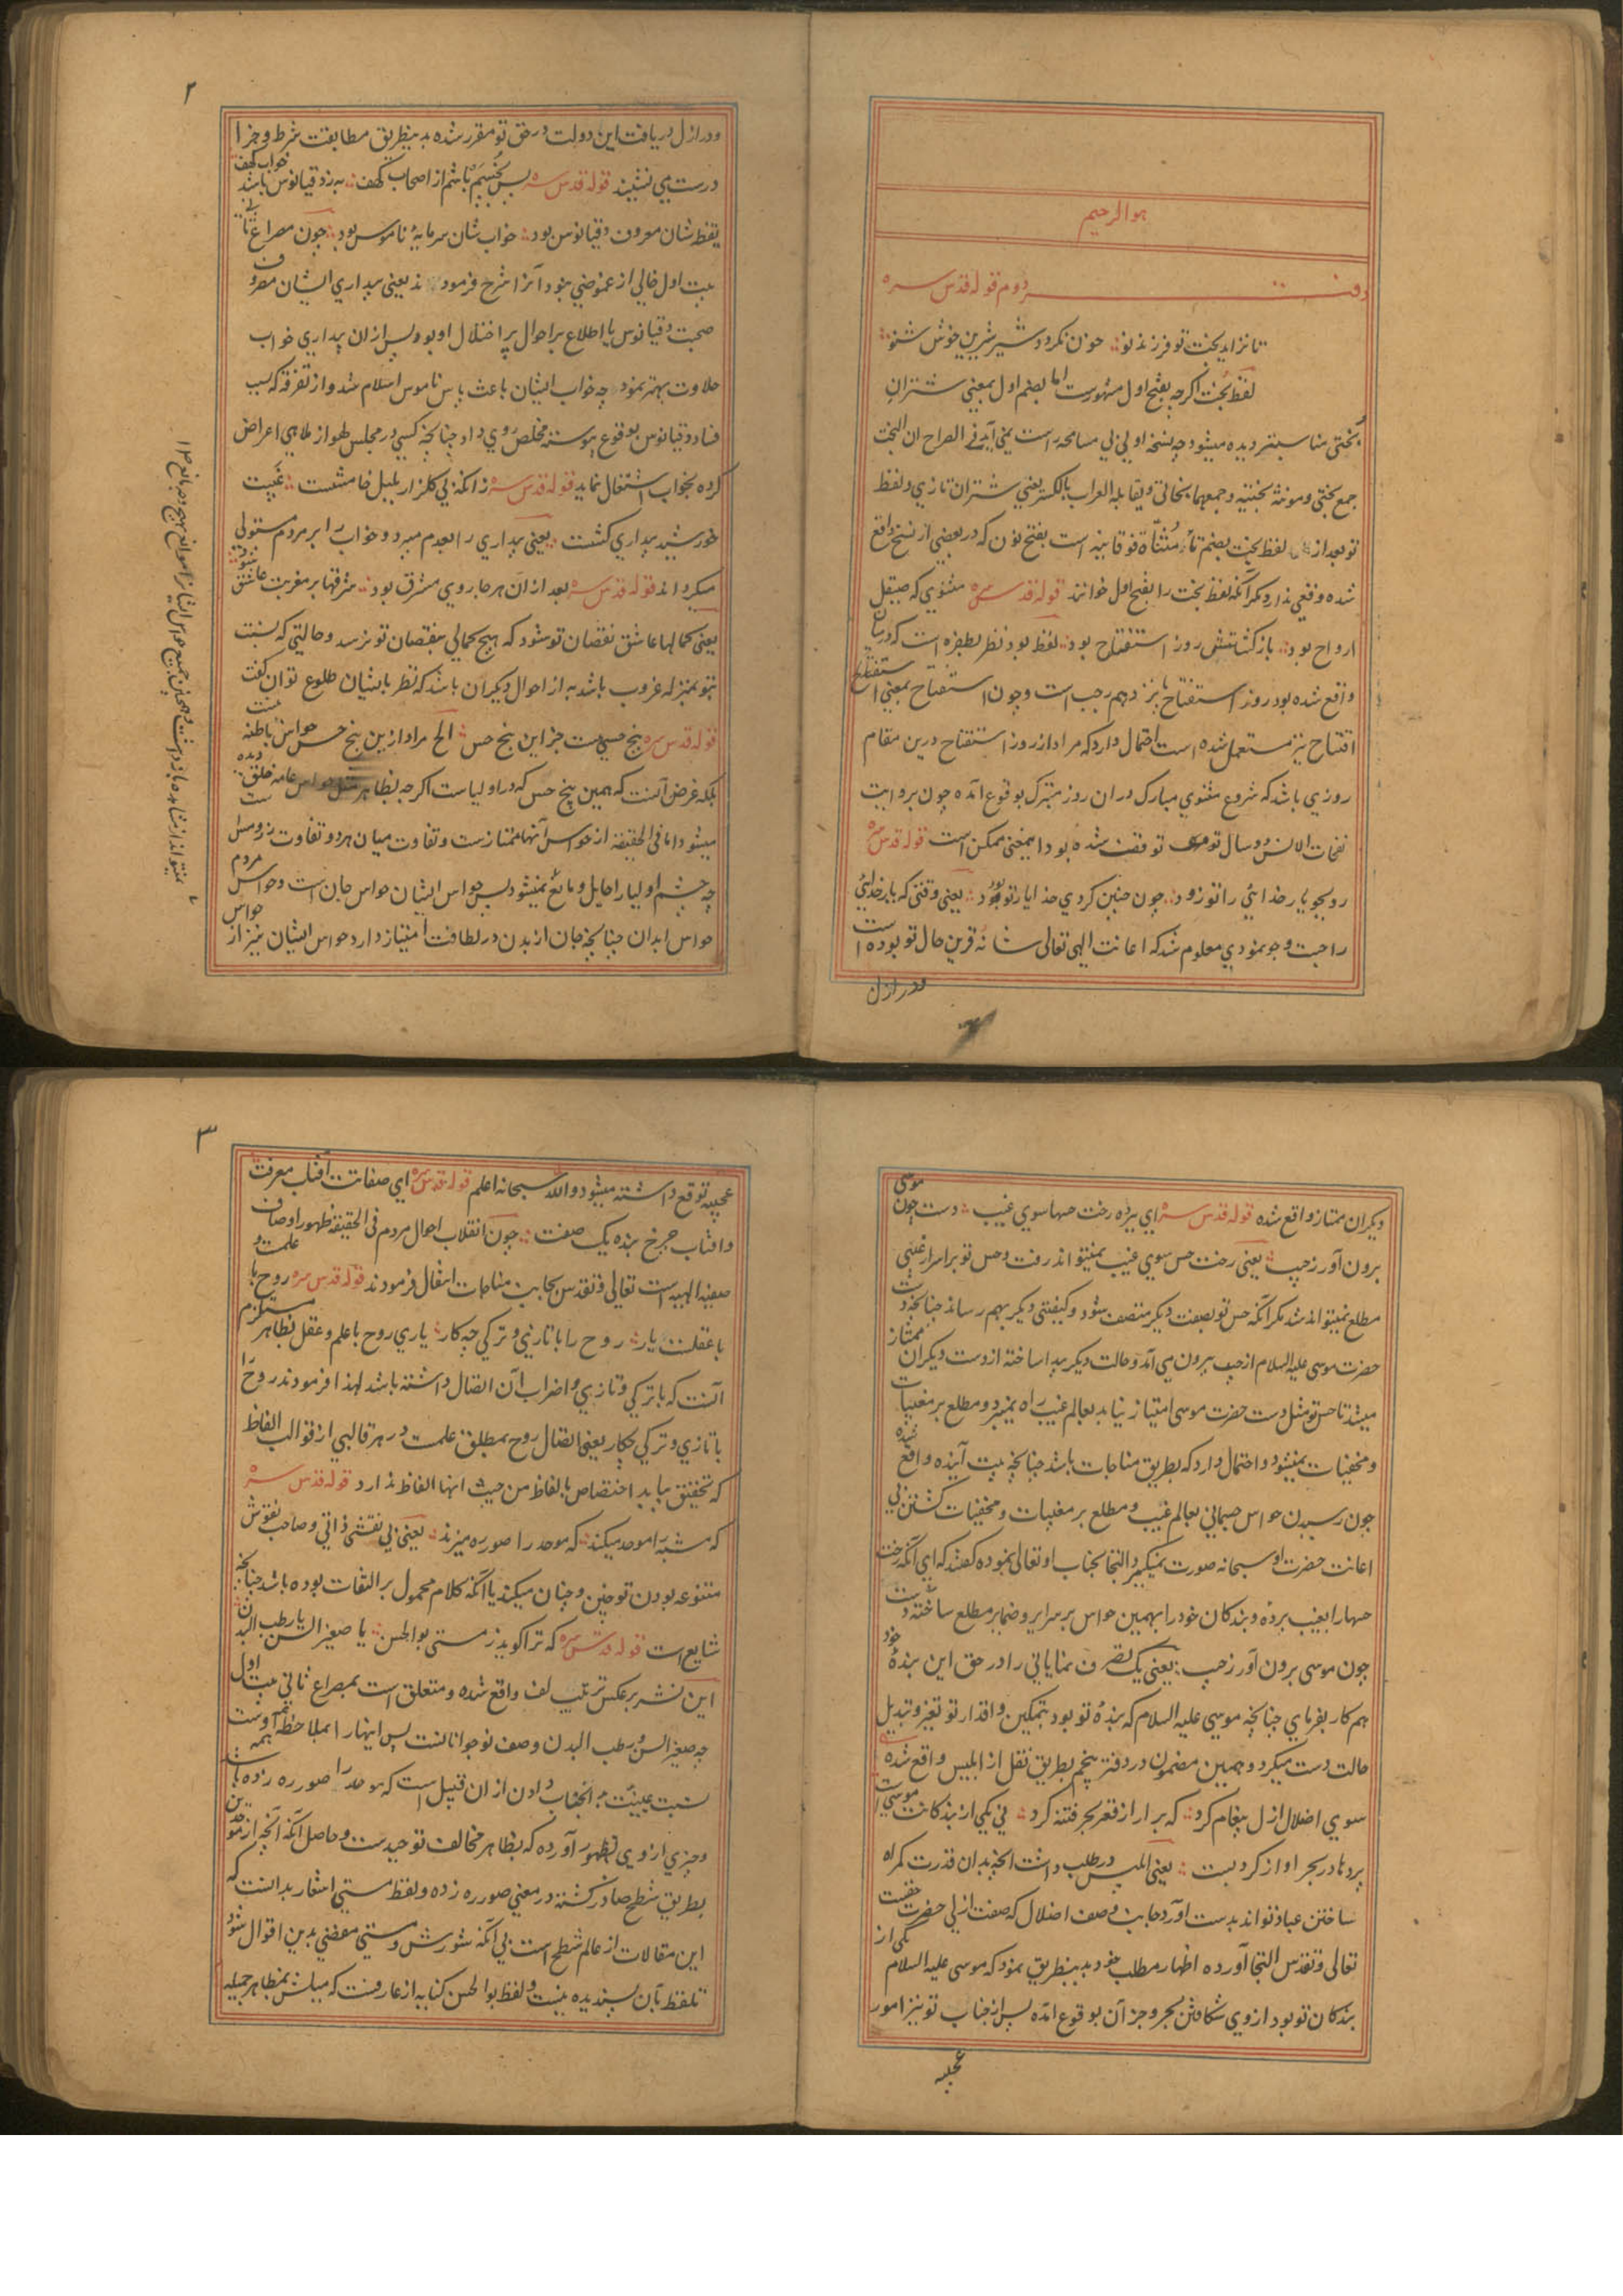 هو الرحیم
دفتر دوم قوله قدس سره
تا نزاید بخت تو فرزند نو خون نکردد شیر شیرین خوش شنو
لفظ بخت اکرچه بفتح اول مشهورست اما بضم اول بمعنی شتران
بختی مناسبتر دیده میشود چه نسخه اولی بی مسامحه راست نمی آید فی الصراح ان البخت
جمع بختی و مونثه بختیه و جمعها بخاتی و یقابله العراب بالکسر یعنی شتران تازی و لفظ
تو بعد از لفظ بخت بضم تاء مثناة فوقانیه است بفتح نون که در بعضی از نسخ واقع
شده وقعی ندارد مکر آنکه لفظ بخت را بفتح اول خوانند قوله قدس سره مثنوی که صیقل
ارواح بود باز کشتش روز استفتاح بود لفظ بود نظر بطفره است که درمیان
واقع شده بود روز استفتاح پانزدهم رجب است و چون استفتاح بمعنی استفتاح
افتتاح نیز مستعمل شده است احتمال دارد که مراد از روز استفتاح درین مقام
روزی باشد که شروع مثنوی مبارک در ان روز متبرک بوقوع آمده چون بروایت
نفحات الانس دو سال توقف شده بود اینمعنی ممکن است قوله قدس سره
رو بجو یار خدایی را تو زود چون چنین کردی خدا یار تو بود یعنی وقتی که یار خدایی
را جست و جو نمودی معلوم شد که اعانت الهی تعالی شانه قرین حال تو بوده است
و در ازل
۲
و در ازل دریافت این دولت در حق تو مقرر شده بدینطریق مطابقت شرط و جزا
درست می نشیند قوله قدس سره پس بخسپم باشم از اصحاب کهف به ز دقیانوس باشد خواب کهف
یقظه شان مصروف دقیانوس بود خواب شان سرمایهٔ ناموس بود چون مصراع ثانی
بیت اول خالی از غموضی نبود آنرا شرح فرمودند یعنی بیداری ایشان مصروف
صحبت دقیانوس یا اطلاع بر احوال پر اختلال او بود و پس از ان بیداری خواب
حلاوت بهتر نمود چه خواب ایشان باعث پاس ناموس اسلام شد و از تفرقه که بسبب
فساد دقیانوس بوقوع پیوسته مخلص روی داد چنانچه کسی در مجلس لهو از ملاهی اعراض
کرده بخواب اشتغال نماید قوله قدس سره زانکه بی کلزار بلبل خامشست غیبت
خورشید بیداری کشست یعنی بیداری را بعدم میبرد و خواب را بر مردم مستولی
میکرداند قوله قدس سره بعد از ان هر جا روی مشرق بود شرقها بر مغربت عاشق شود
یعنی کمالها عاشق نقصان تو شود که هیچ کمالی بنقصان تو نرسد و حالتی که نسبت
بتو بمنزله غروب باشد به از احوال دیکران باشد که نظر بایشان طلوع توان کفت
قوله قدس سره پنج حسی هست جز این پنج حس الخ مراد ازین پنج حس حواس باطنه نیست
بلکه غرض آنست که همین پنج حس که در اولیاست اکرچه بظاهر مثل حواس عامه خلق دیده
میشود اما فی الحقیقة از حواس آنها ممتازست و تفاوت میان هر دو تفاوت زر و مس است
چه چشم اولیا را حایل و مانع نمیشود پس حواس ایشان حواس جان است و حواس مردم
حواس ابدان چنانچه جان از بدن در لطافت امتیاز دارد حواس ایشان نیز از حواس
دیکران ممتاز واقع شده قوله قدس سره ای ببرده رخت حسها سوی غیب دست چون موسی
برون آور ز جیب یعنی رخت حس سوی غیب نمیتواند رفت و حس تو بر اسرار غیبی
مطلع نمیتواند شد مکر آنکه حس تو بصفت دیکر متصف شود و کیفیتی دیکر بهم رساند چنانچه دست
حضرت موسی علیه السلام از جیب بیرون می آمد و حالت دیکر پیدا ساخته از دست دیکران ممتاز
میشد تا حس تو مثل دست حضرت موسی امتیاز نیابد بعالم غیب راه نمیبرد و مطلع بر مغیبات
و مخفیات نمیشود و احتمال دارد که بطریق مناجات باشد چنانچه بیت آینده واقع شده
چون رسیدن حواس جسمانی بعالم غیب و مطلع بر مغیبات و مخفیات کشتن بی
اعانت حضرت او سبحانه صورت نمیکیرد التجا بجناب او تعالی نموده کفتند که ای آنکه رخت
حسها را بغیب برده و بندکان خود را بهمین حواس بر سرایر و ضمایر مطلع ساخته دست
چون موسی برون آور ز جیب یعنی یک تصرف نمایانی را در حق این بندهٔ خود
هم کار بفرمای چنانچه موسی علیه السلام که بندهٔ تو بود بتمکین و اقدار تو تغیر و تبدیل
حالت دست میکرد و همین مضمون در دفتر پنجم بطریق نقل از ابلیس واقع شده
سوی اضلال ازل پیغام کرد که برار از قعر بحر فتنه کرد نی یکی از بندکانت موسی است
پردها در بحر او از کرد بست یعنی ابلیس در طلب داشت آنچه بدان قدرت کمراه
ساختن عباد تواند بدست آورد بجانب وصف اضلال که صفت ازلی حضرت حقیقت
تعالی و تقدس التجا آورده اظهار مطلب خود بدینطریق نمود که موسی علیه السلام یکی از
بندکان تو بود از وی شکافتن بحر و جز آن بوقوع آمده پس از جناب تو نیز امور
عجیبه
۳
عجیبه توقع داشته میشود والله سبحانه اعلم قوله قدس سره ای صفاتت آفتاب معرفت
و افتاب چرخ بنده یک صفت چون انقلاب احوال مردم فی الحقیقة ظهور اوصاف
الهیه است تعالی و تقدس بجانب مناجات انتقال فرمودند قوله قدس سره روح با علمست و
با عقلست یار روح را با تازی و ترکی چه کار یاری روح با علم و عقل بظاهر مستلزم
آنست که با ترکی و تازی و اضراب آن اتصال داشته باشد لهذا فرمودند روح را
با تازی و ترکی چکار یعنی اتصال روح بمطلق علمست در هر قالبی از قوالب الفاظ
که تحقیق بیابد اختصاص بالفاظ من حیث انها الفاظ ندارد قوله قدس سره
که مشبه را موحد میکند که موحد را صور ره میزند یعنی بی نقشی ذاتی و صاحب نقوش
متنوعه بودن تو چنین و چنان میکند یا آنکه کلام محمول بر التفات بوده باشد چنانچه
شایع است قوله قدس سره که ترا کوید ز مستی بوالحسن یا صغیر السن یا رطب البدن
این نشر بر عکس ترتیب لف واقع شده و متعلق است بمصراع ثانی بیت اول
چه صغیر السن و رطب البدن وصف نوجوانانست پس اینها را بملاحظه همه اوست
نسبت عینیت به انجناب دادن از ان قبیل است که موحد را صور ره زده باشد
و چیزی از وی بظهور آورده که بظاهر مخالف توحیدست و حاصل آنکه آنچه از موحد
بطریق شطح صادر کشته در معنی صور ره زده و لفظ مستی اشعار بدانست که
این مقالات از عالم شطح است بی آنکه شورش و مستی مفضی بدین اقوال شود
تلفظ بآن پسندیده نیست و لفظ بوالحسن کنایه از عارفست که میلش بمظاهر جمیله